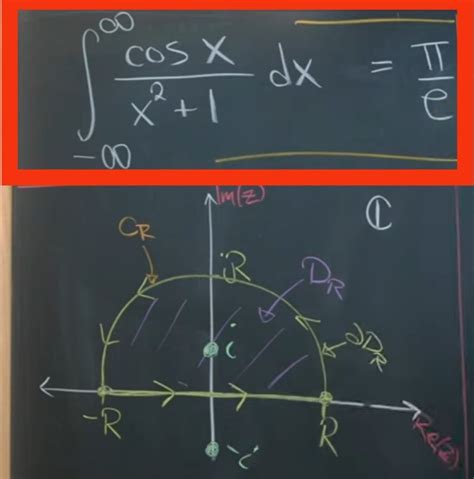 ∫_{-∞}^{∞} cos x / (x² + 1) dx = π / e
Im(z)
ℂ
C_R
iR
D_R
∂D_R
i
-R
R
Re(z)
-i